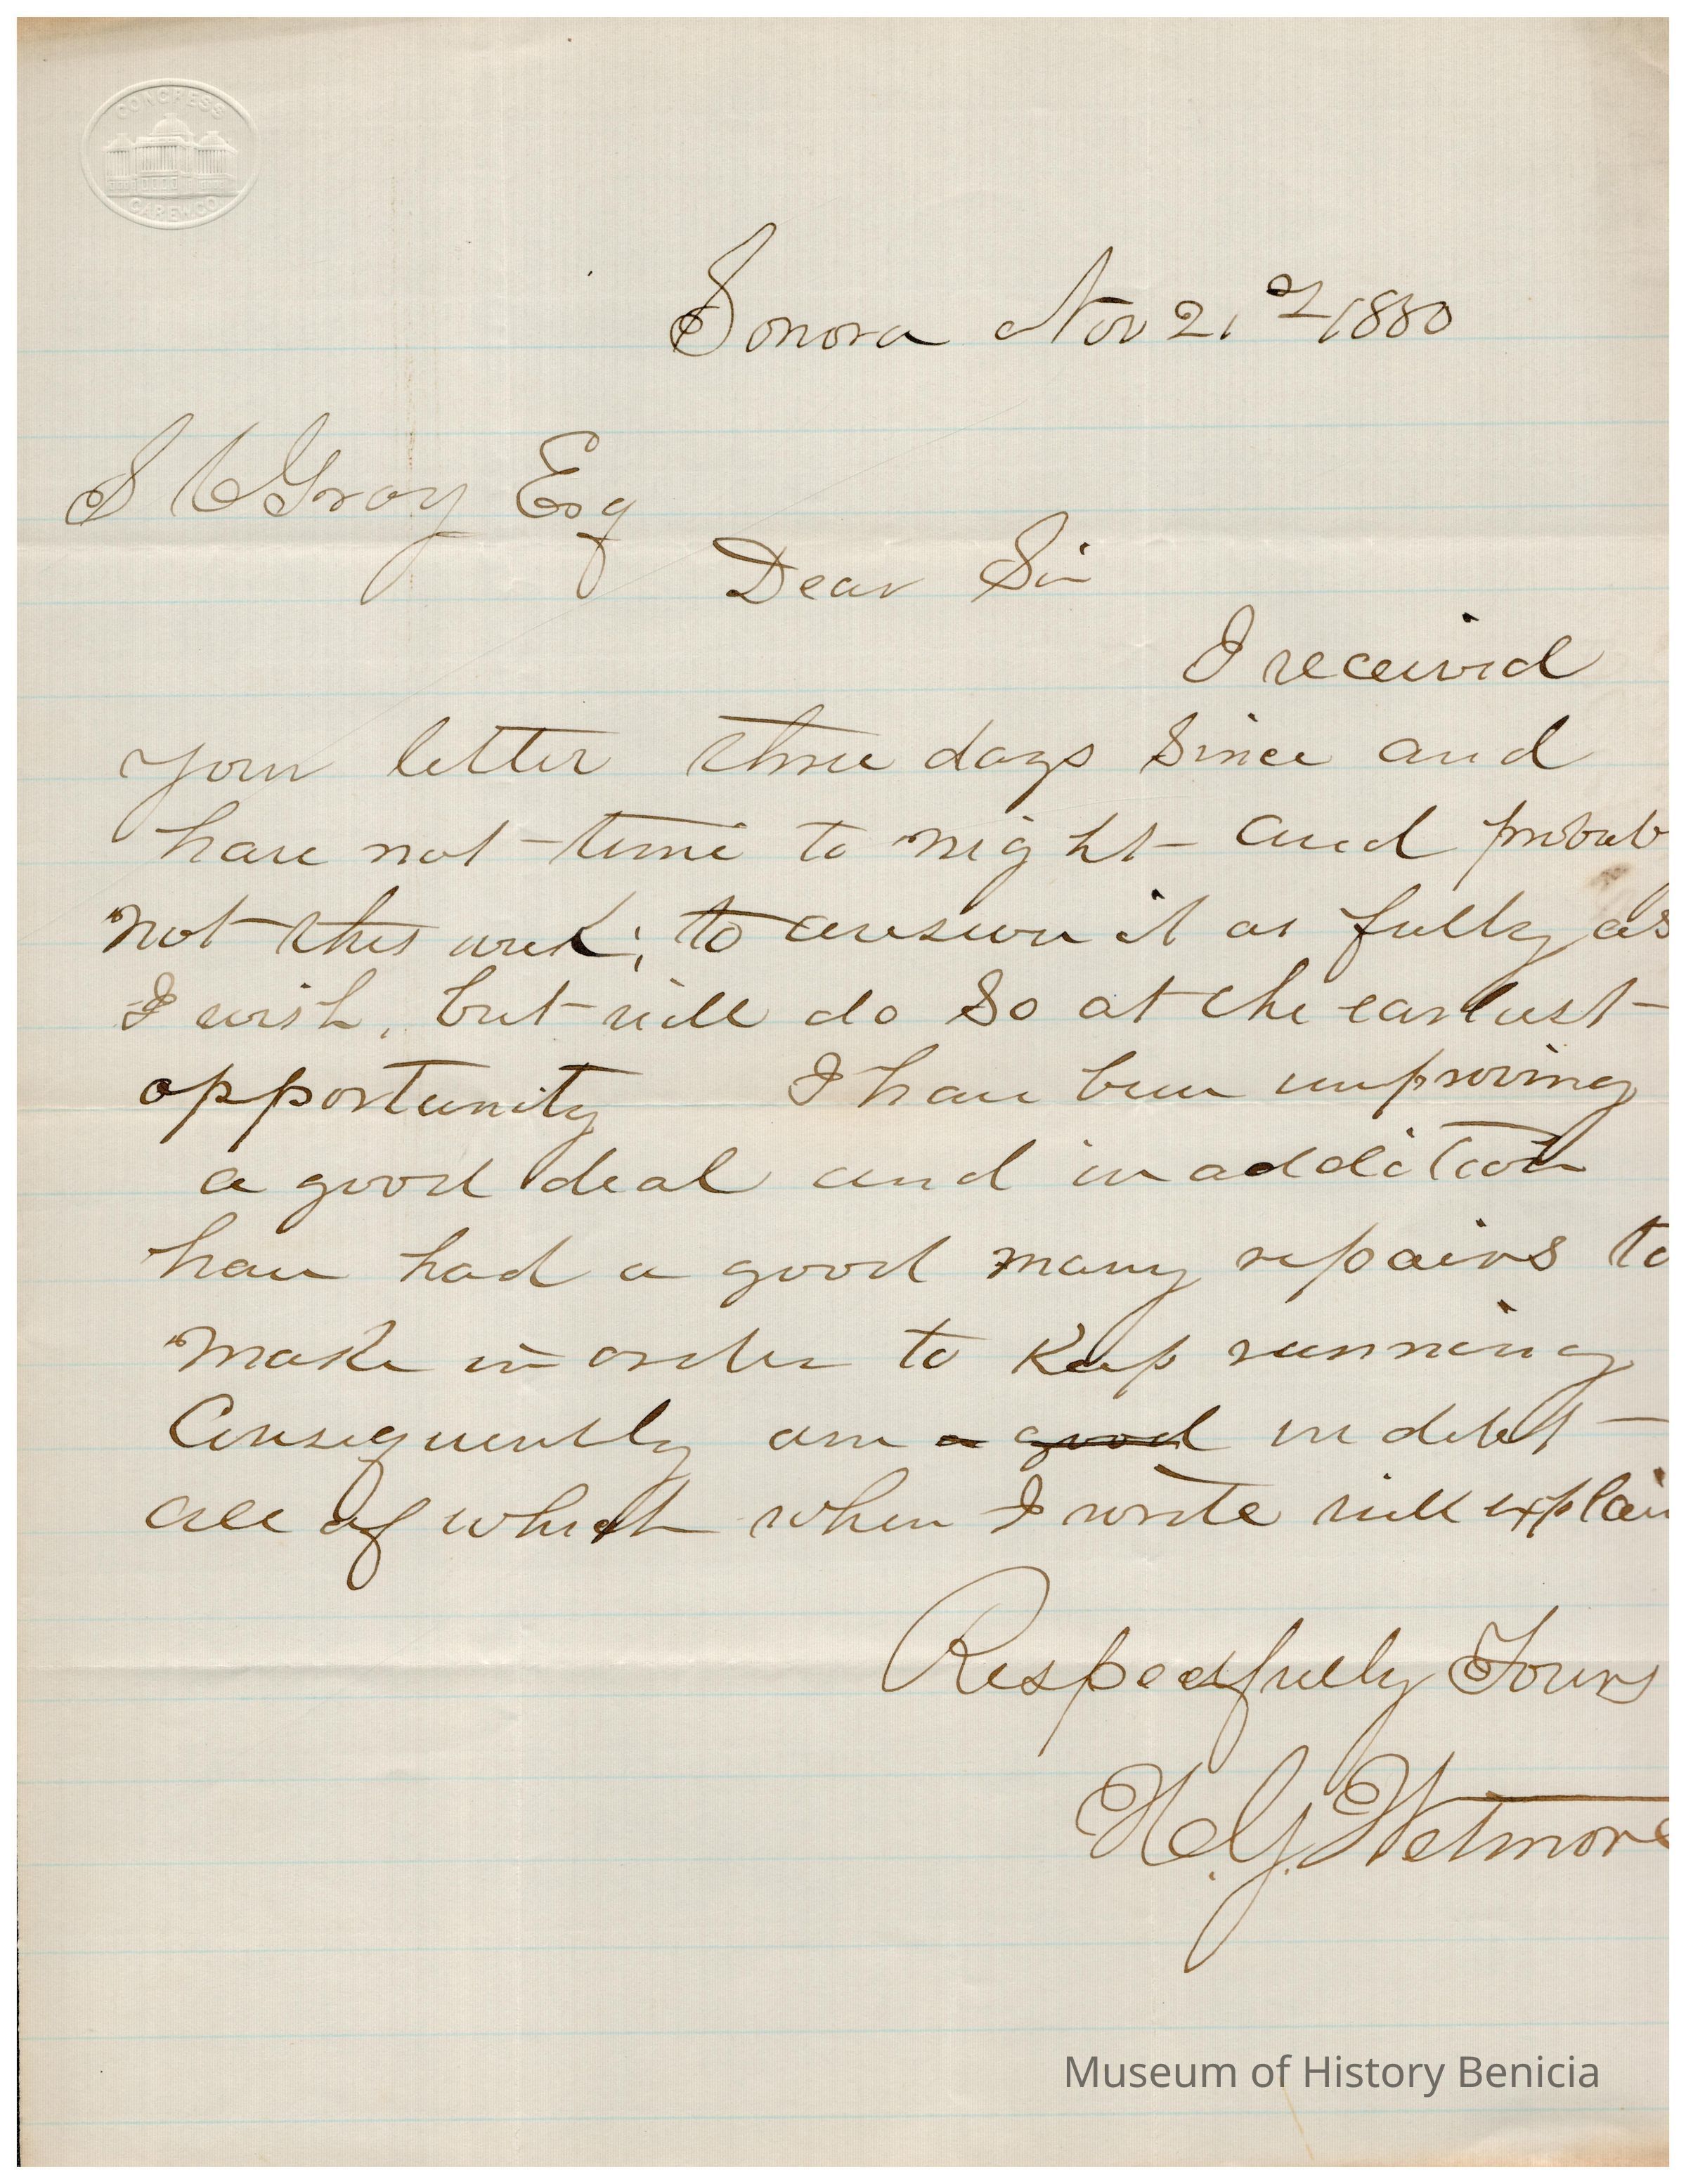 CONGRESS
CAREW CO
Sonora Nov 21st 1880
S C Gray Esq
Dear Sir
I received
your letter three days since and
have not time to night and probab
not this week; to answer it as fully as
I wish, but will do so at the earliest
opportunity I have been improving
a good deal and in addition
have had a good many repairs to
make in order to keep running
Consequently am a good in debt
all of which when I write will explain
Respectfully Yours
H.G. Wetmore
Museum of History Benicia